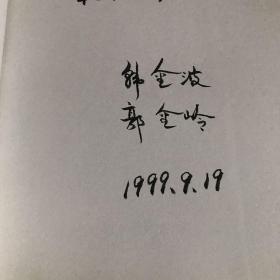 韩金波
郭金岭
1999.9.19